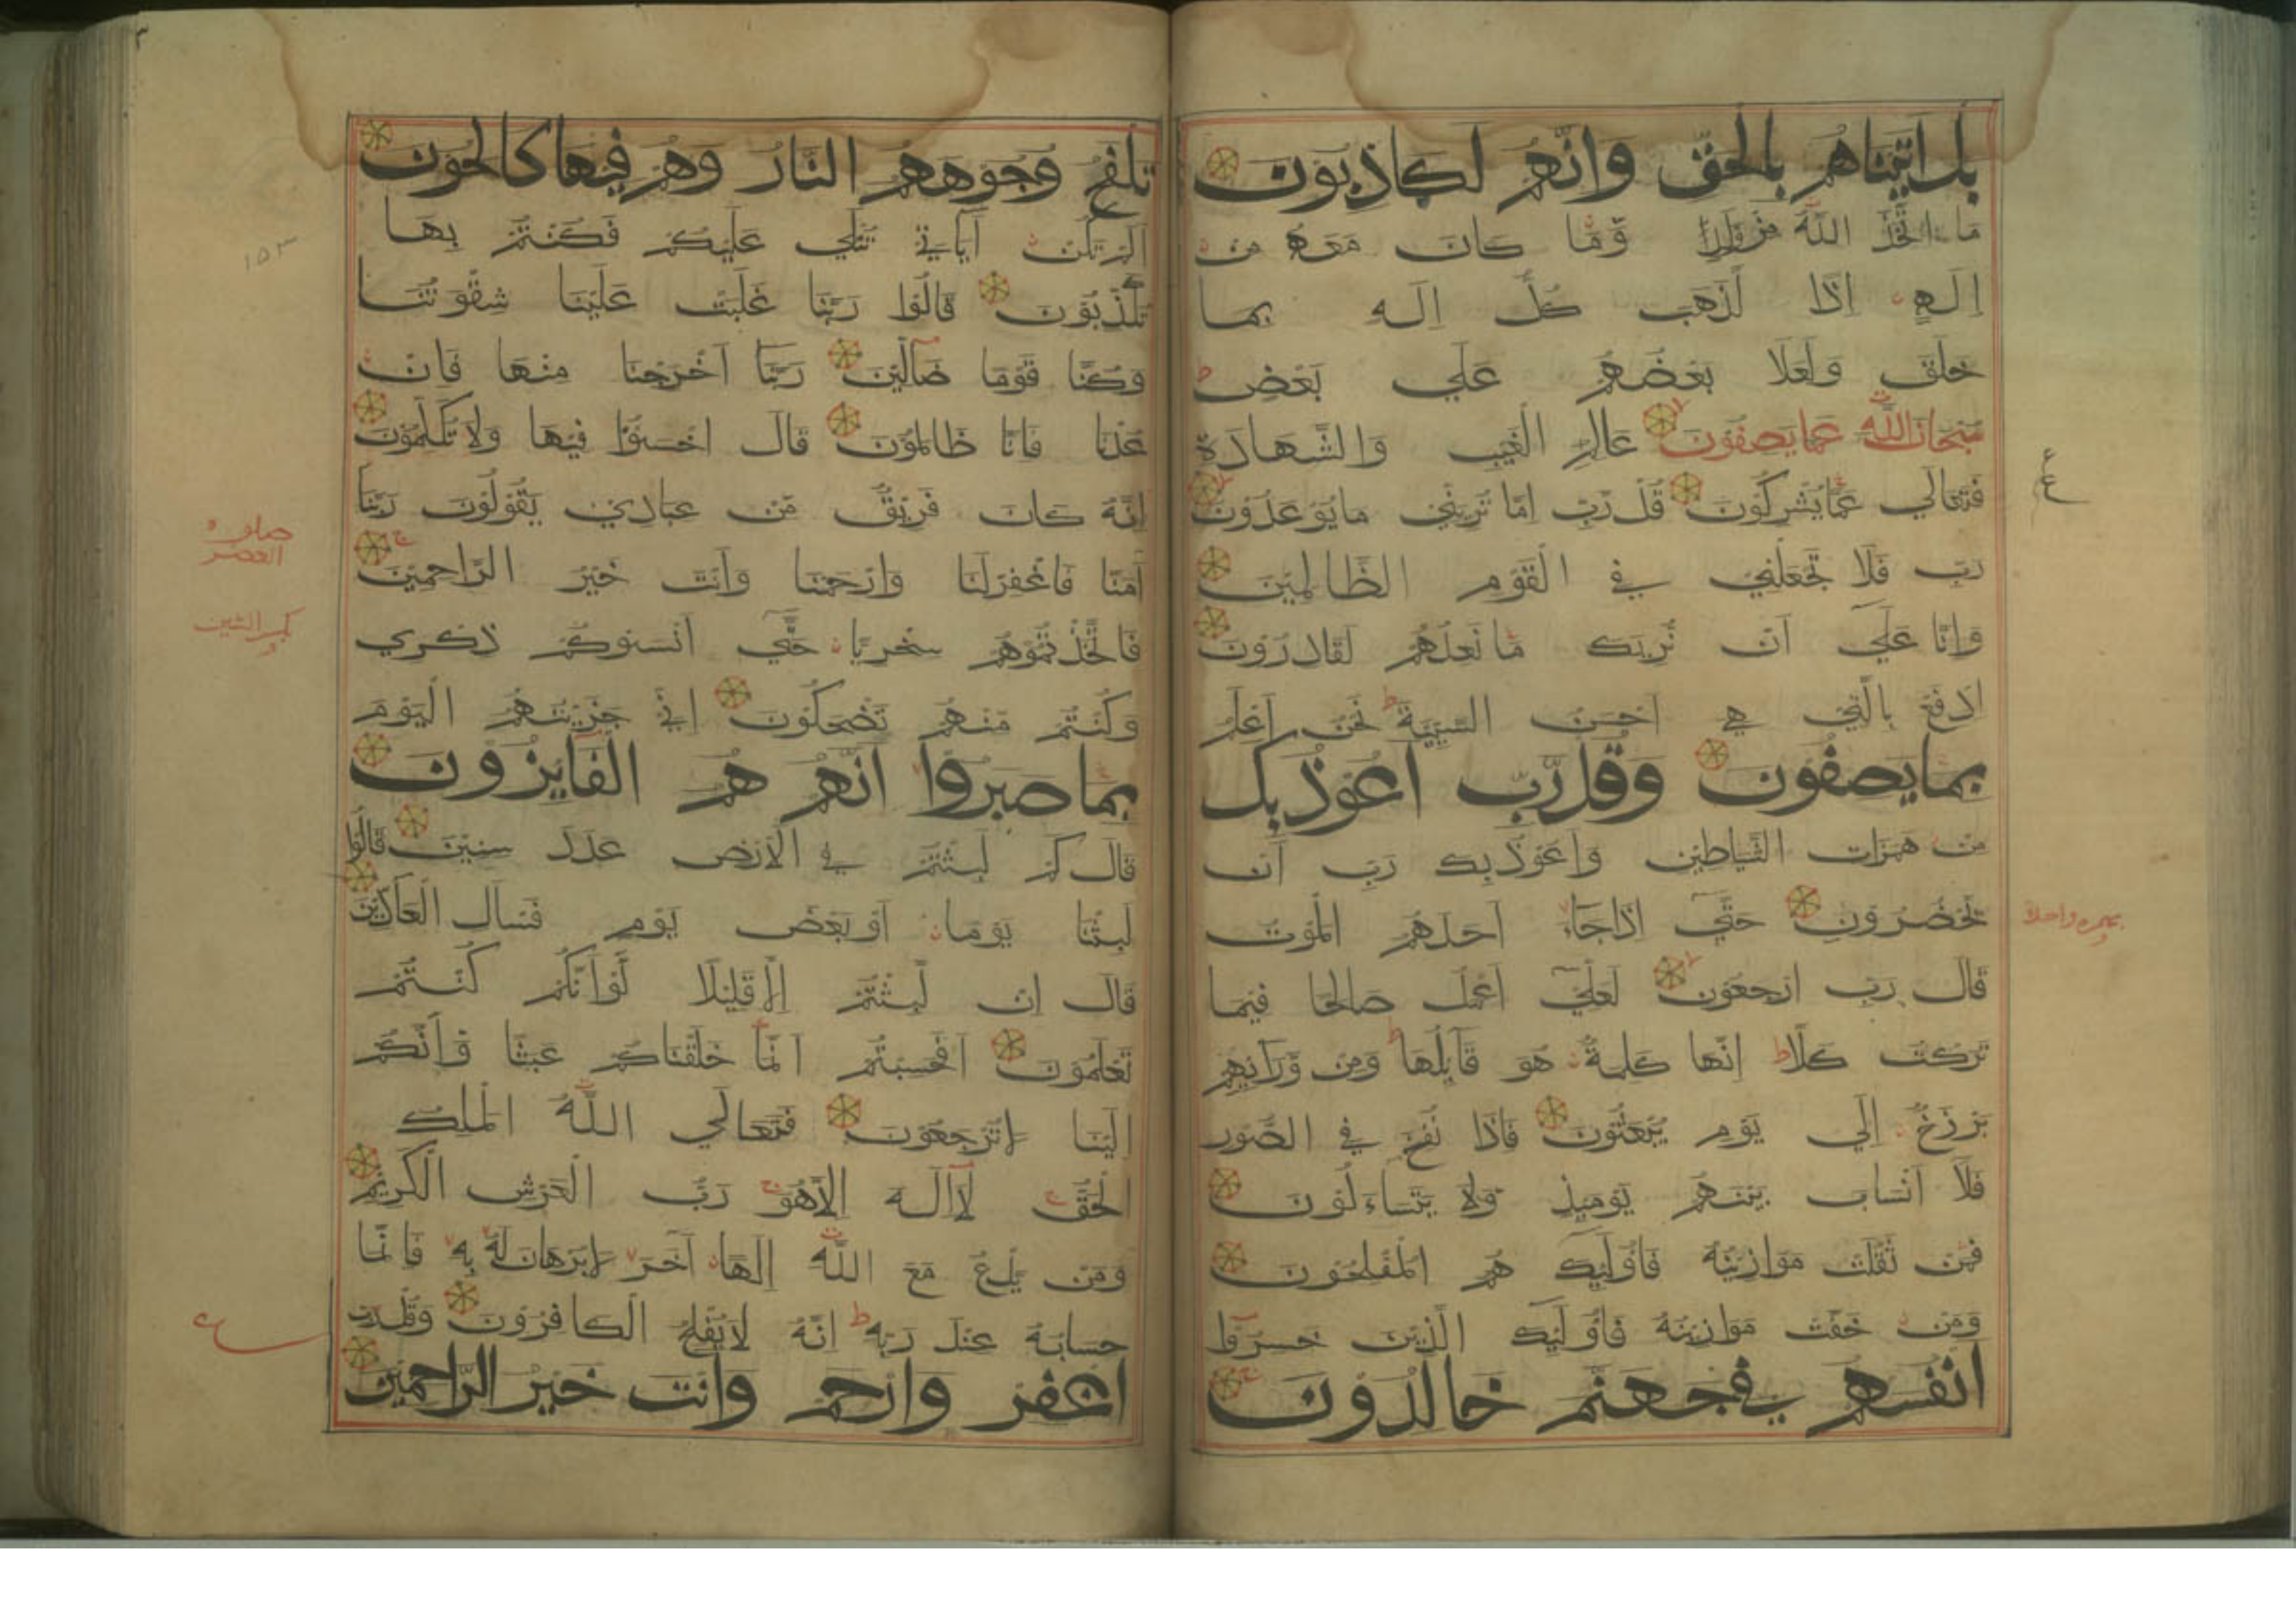 بل اتيناهم بالحق وانهم لكاذبون
ما اتخذ الله من ولد وما كان معه من
اله اذا لذهب كل اله بما
خلق ولعلا بعضهم علي بعض
سبحان الله عما يصفون عالم الغيب والشهادة
فتعالي عما يشركون قل رب اما تريني ما يوعدون
رب فلا تجعلني في القوم الظالمين
وانا علي ان نريك ما نعدهم لقادرون
ادفع بالتي هي احسن السيية نحن اعلم
بما يصفون وقل رب اعوذ بك
من همزات الشياطين واعوذ بك رب ان
يحضرون حتي اذا جاء احدهم الموت
قال رب ارجعون لعلي اعمل صالحا فيما
تركت كلا انها كلمة هو قايلها ومن ورايهم
برزخ الي يوم يبعثون فاذا نفخ في الصور
فلا انساب بينهم يوميذ ولا يتساءلون
فمن ثقلت موازينه فاوليك هم المفلحون
ومن خفت موازينه فاوليك الذين خسروا
انفسهم في جهنم خالدون
ع
تلفح وجوههم النار وهم فيها كالحون
الم تكن آياتي تتلي عليكم فكنتم بها
تكذبون قالوا ربنا غلبت علينا شقوتنا
وكنا قوما ضالين ربنا اخرجنا منها فان
عدنا فانا ظالمون قال اخسئوا فيها ولا تكلمون
انه كان فريق من عبادي يقولون ربنا
آمنا فاغفر لنا وارحمنا وانت خير الراحمين
فاتخذتموهم سخريا حتي انسوكم ذكري
وكنتم منهم تضحكون اني جزيتهم اليوم
بما صبروا انهم هم الفايزون
قال كم لبثتم في الارض عدد سنين قالوا
لبثنا يوما او بعض يوم فسال العادين
قال ان لبثتم الا قليلا لو انكم كنتم
تعلمون افحسبتم انما خلقناكم عبثا وانكم
الينا لا ترجعون فتعالي الله الملك
الحق لا اله الا هو رب العرش الكريم
ومن يدع مع الله الها آخر لا برهان له به فانما
حسابه عند ربه انه لا يفلح الكافرون وقل رب
اغفر وارحم وانت خير الراحمين
١٥٣
بكسر الشين
ع